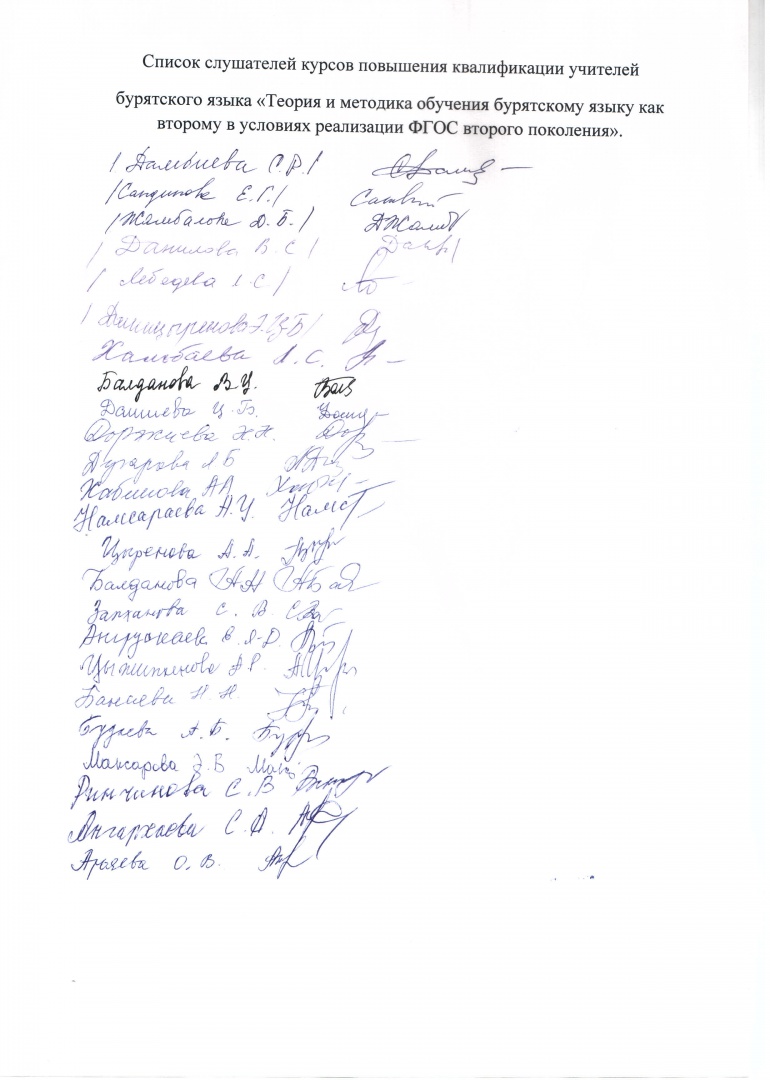 Список слушателей курсов повышения квалификации учителей
бурятского языка «Теория и методика обучения бурятскому языку как
второму в условиях реализации ФГОС второго поколения».
/ Дамбиева С.Р./
/ Сандипова Е.Г./
/ Жамбалова Д.Б./
/ Данилова В.С/
/ Лебедева А.С/
/ Дашицыренова Э.Ц.Б/
Халбаева А.С.
Балданова В.Ц.
Дашиева Ц.Б.
Доржиева Н.Н.
Дугарова А Б
Хабинова АА
Намсараева А.Ц. Намс
Цыренова А.А.
Балданова АА АБал
Запханова С. В.
В. Я-Д.
А Р.
Банаева Н. Н.
Будаева А.Б.
Максарова Э.В Макс
Ринчинова С.В
Ангархаева С.А.
Арьяева О.В.